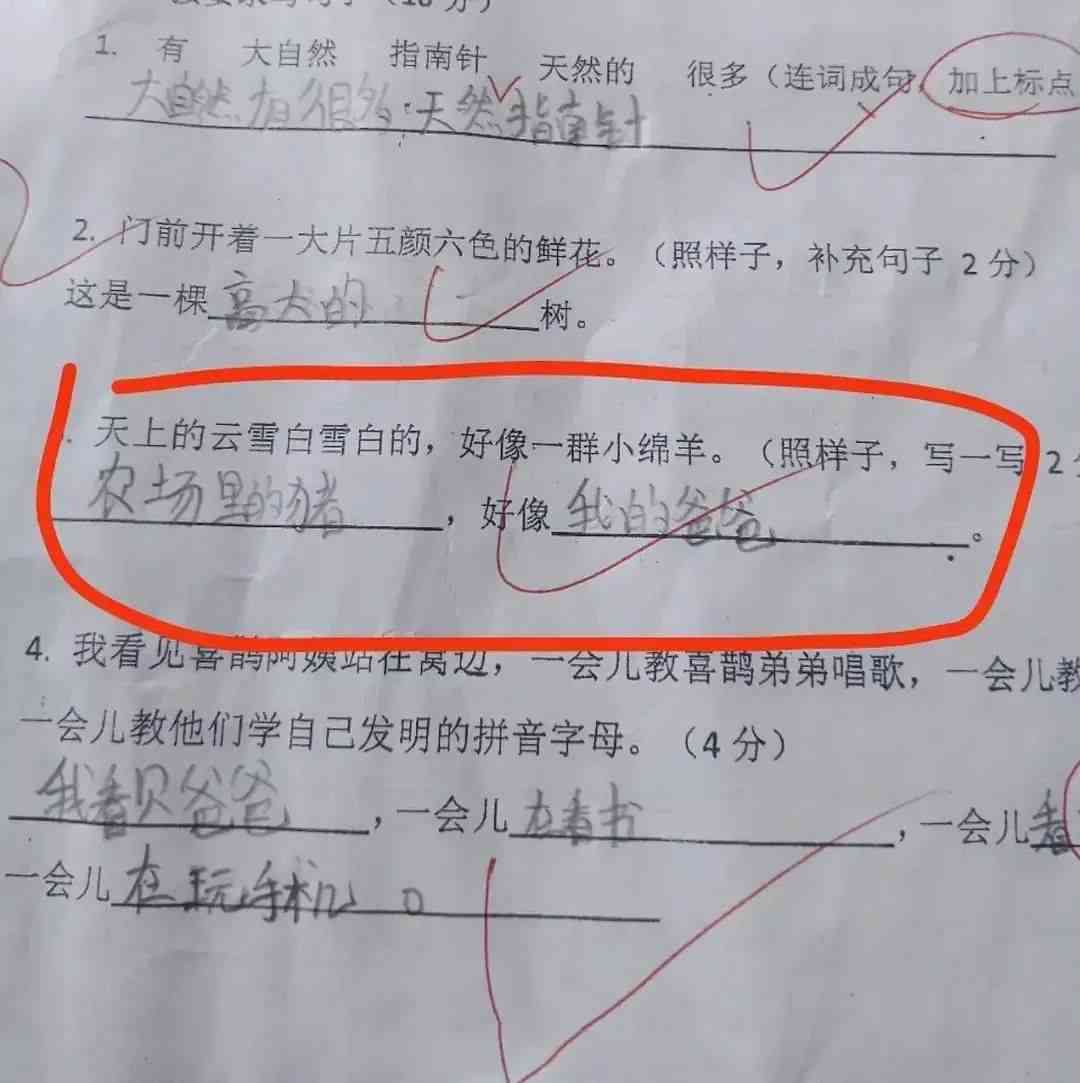 1. 有 大自然 指南针 天然的 很多（连词成句，加上标点
大自然有很多天然指南针
2. 门前开着一大片五颜六色的鲜花。（照样子，补充句子 2 分）
这是一棵高大的树。
. 天上的云雪白雪白的，好像一群小绵羊。（照样子，写一写 2
农场里的猪，好像我的爸爸。
4. 我看见喜鹊阿姨站在窝边，一会儿教喜鹊弟弟唱歌，一会儿教
一会儿教他们学自己发明的拼音字母。（4 分）
我看见爸爸，一会儿在看书，一会儿看
一会儿在玩手机。